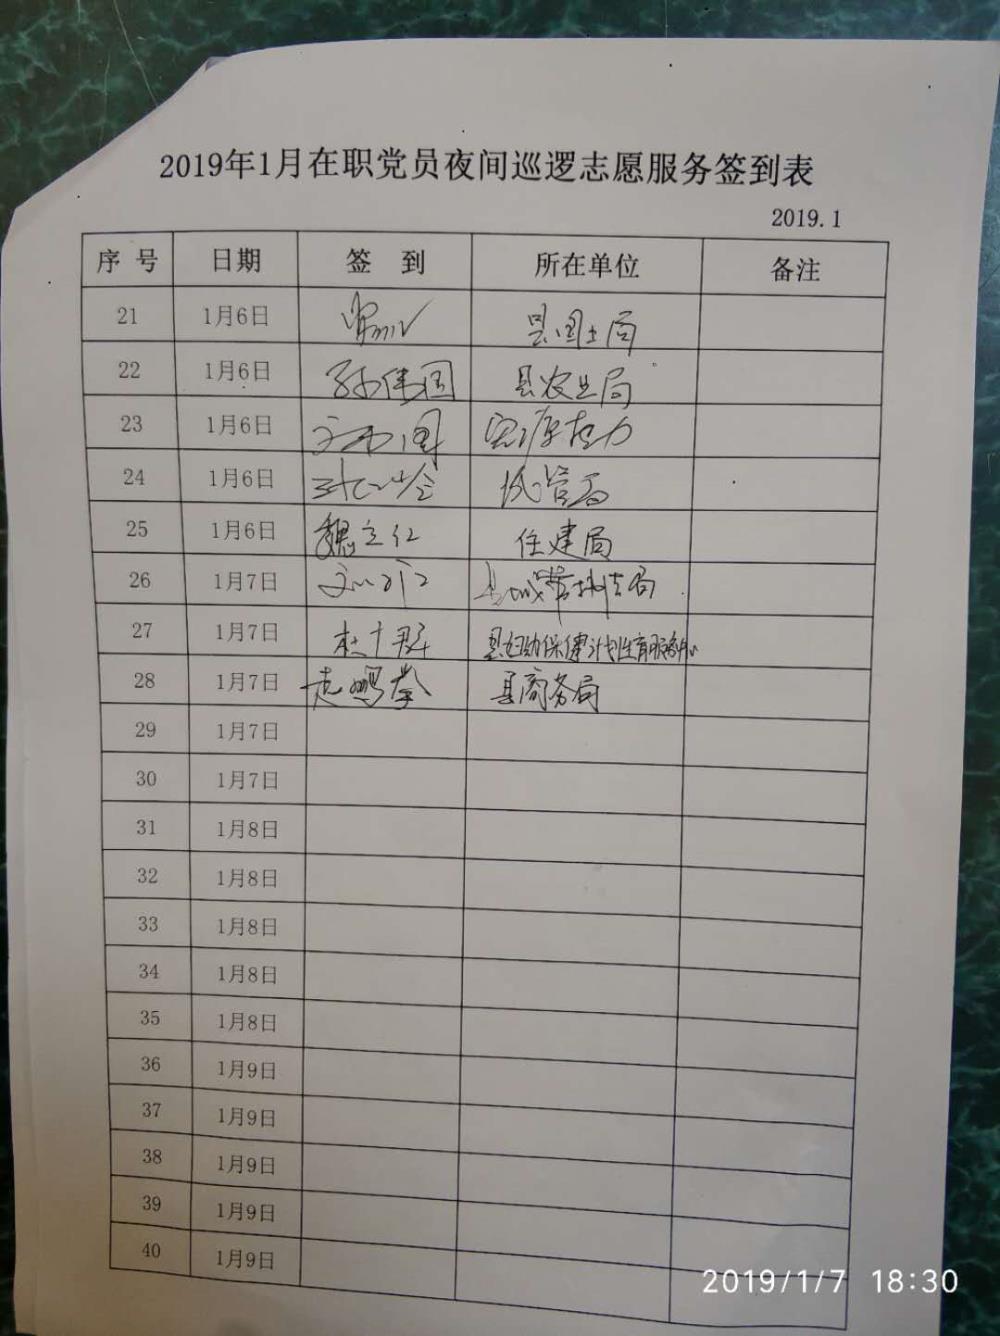 2019年1月在职党员夜间巡逻志愿服务签到表
2019.1
序号 日期 签到 所在单位 备注
21 1月6日 县国土局
22 1月6日 孙伟国 县农业局
23 1月6日
24 1月6日 城管局
25 1月6日 魏立仁 住建局
26 1月7日
27 1月7日 县妇幼保健计划生育服务中心
28 1月7日 县商务局
29 1月7日
30 1月7日
31 1月8日
32 1月8日
33 1月8日
34 1月8日
35 1月8日
36 1月9日
37 1月9日
38 1月9日
39 1月9日
40 1月9日
2019/1/7 18:30